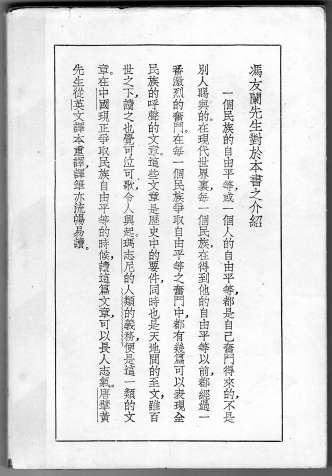 馮友蘭先生對於本書之介紹
一個民族的自由平等或一個人的自由平等都是自己奮鬥得來的,不是
別人賜與的。在現代世界裏每一個民族,在得到他的自由平等以前,都經過一
番激烈的奮鬥。在每一個民族爭取自由平等之奮鬥中,都有幾篇可以表現全
民族的呼聲的文章。這些文章是歷史中的要件,同時也是天地間的至文,雖百
世之下,讀之也覺可泣可歌,令人興起。瑪志尼的人類的義務,便是這一類的文
章。在中國現正爭取民族自由平等的時候,讀這篇文章,可以長人志氣。唐擘黃
先生從英文譯本重譯,譯筆亦流暢易讀。